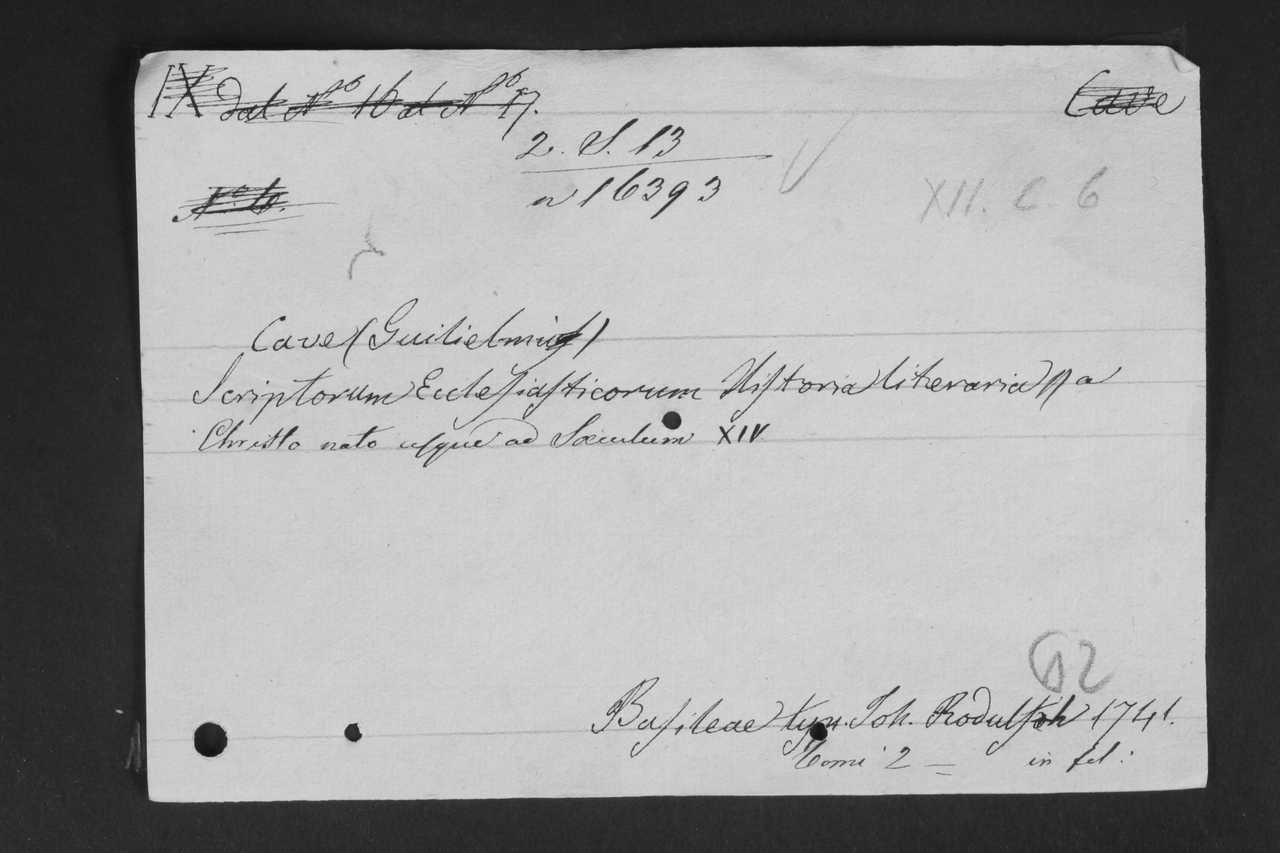 IX dal Nº 16 al Nº 17.
Cave
2. S. 13
Nº 6.
n 16393
XII. C. 6
Cave (Guilielmi)
Scriptorum Ecclesiasticorum Historia literaria a
Christo nato usque ad Sæculum XIV
Basileae typ. Joh. Rodulph 1741.
Tomi 2 — in fol: